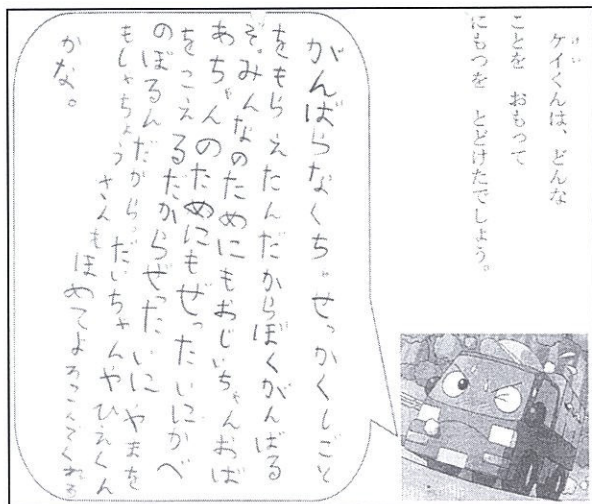 ケイくんは、どんな
ことを おもって
にもつを とどけたでしょう。
がんばらなくちゃせっかくしごと
をもらえたんだからぼくがんばる
ぞ。みんなのためにもおじいちゃんおば
あちゃんのためにもぜったいにかべ
をこえるだからぜったいにやまを
のぼるんだから。だいちゃんやひえくん
もしゃちょうさんもほめてよろこんでくれる
かな。